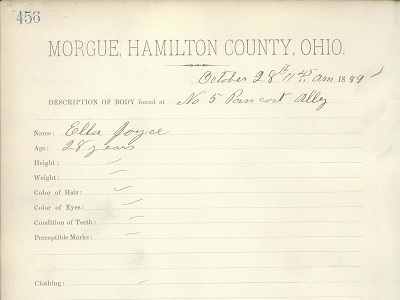 456
MORGUE, HAMILTON COUNTY, OHIO.
October 28th 11 45 am 1889
DESCRIPTION OF BODY found at No 5 Pancost Ally
Name: Ella Joyce
Age: 28 years
Height:
Weight:
Color of Hair:
Color of Eyes:
Condition of Teeth:
Perceptible Marks:
Clothing: